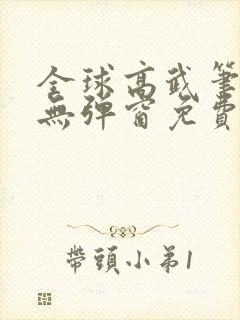 全球高武筆
無彈窗免費
帶頭小弟1